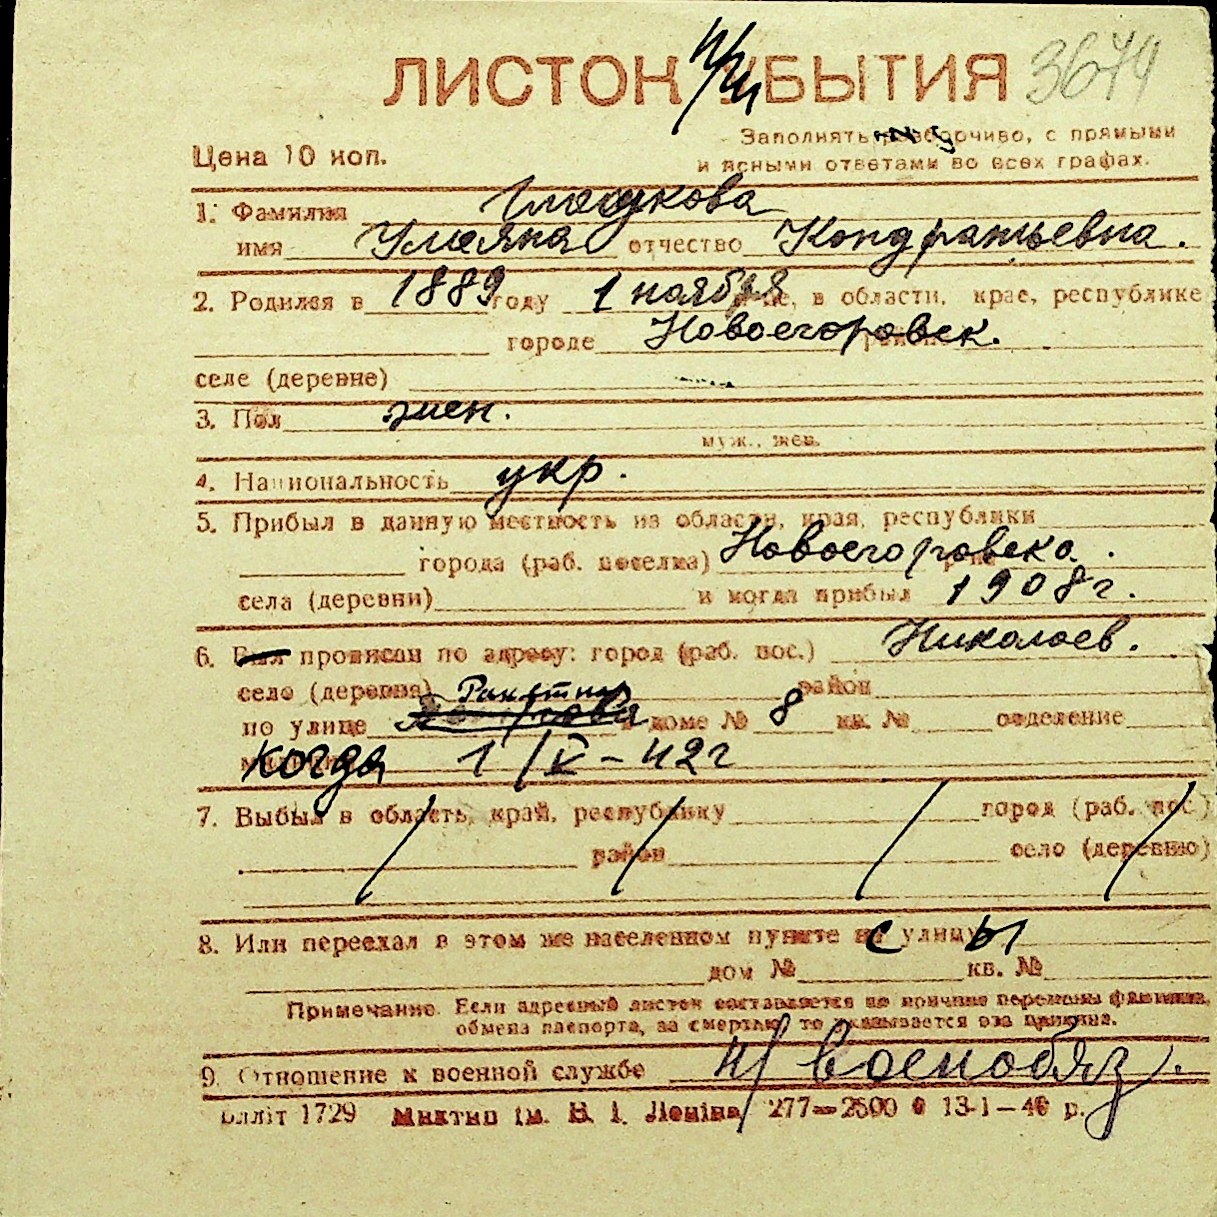 ЛИСТОК УБЫТИЯ 3674
Заполнять разборчиво, с прямыми
Цена 10 коп.
и ясными ответами во всех графах.
1. Фамилия
имя Ульяна отчество Кондратьевна.
2. Родился в 1889 году 1 ноября, в области, крае, республике
городе Новоегоровск.
селе (деревне)
3. Пол жен.
муж., жен.
4. Национальность укр.
5. Прибыл в данную местность из области, края, республики
города (раб. поселка) Новоегоровска.
села (деревни) и когда прибыл 1908 г.
6. Был прописан по адресу: город (раб. пос.) Николаев.
село (деревня) Ракетная район
по улице доме № 8 кв. № отделение
когда 1/V-42 г
7. Выбыл в область, край, республику город (раб. пос.)
район село (деревню)
8. Или переехал в этом же населенном пункте с улицы
дом № кв. №
Примечание. Если адресный листок составляется по причине перемены фамилии,
обмена паспорта, за смертью, то указывается эта причина.
9. Отношение к военной службе н/военообяз.
Білліт 1729 Миктип ім. В. І. Леніна 277—2500 13-1—40 р.